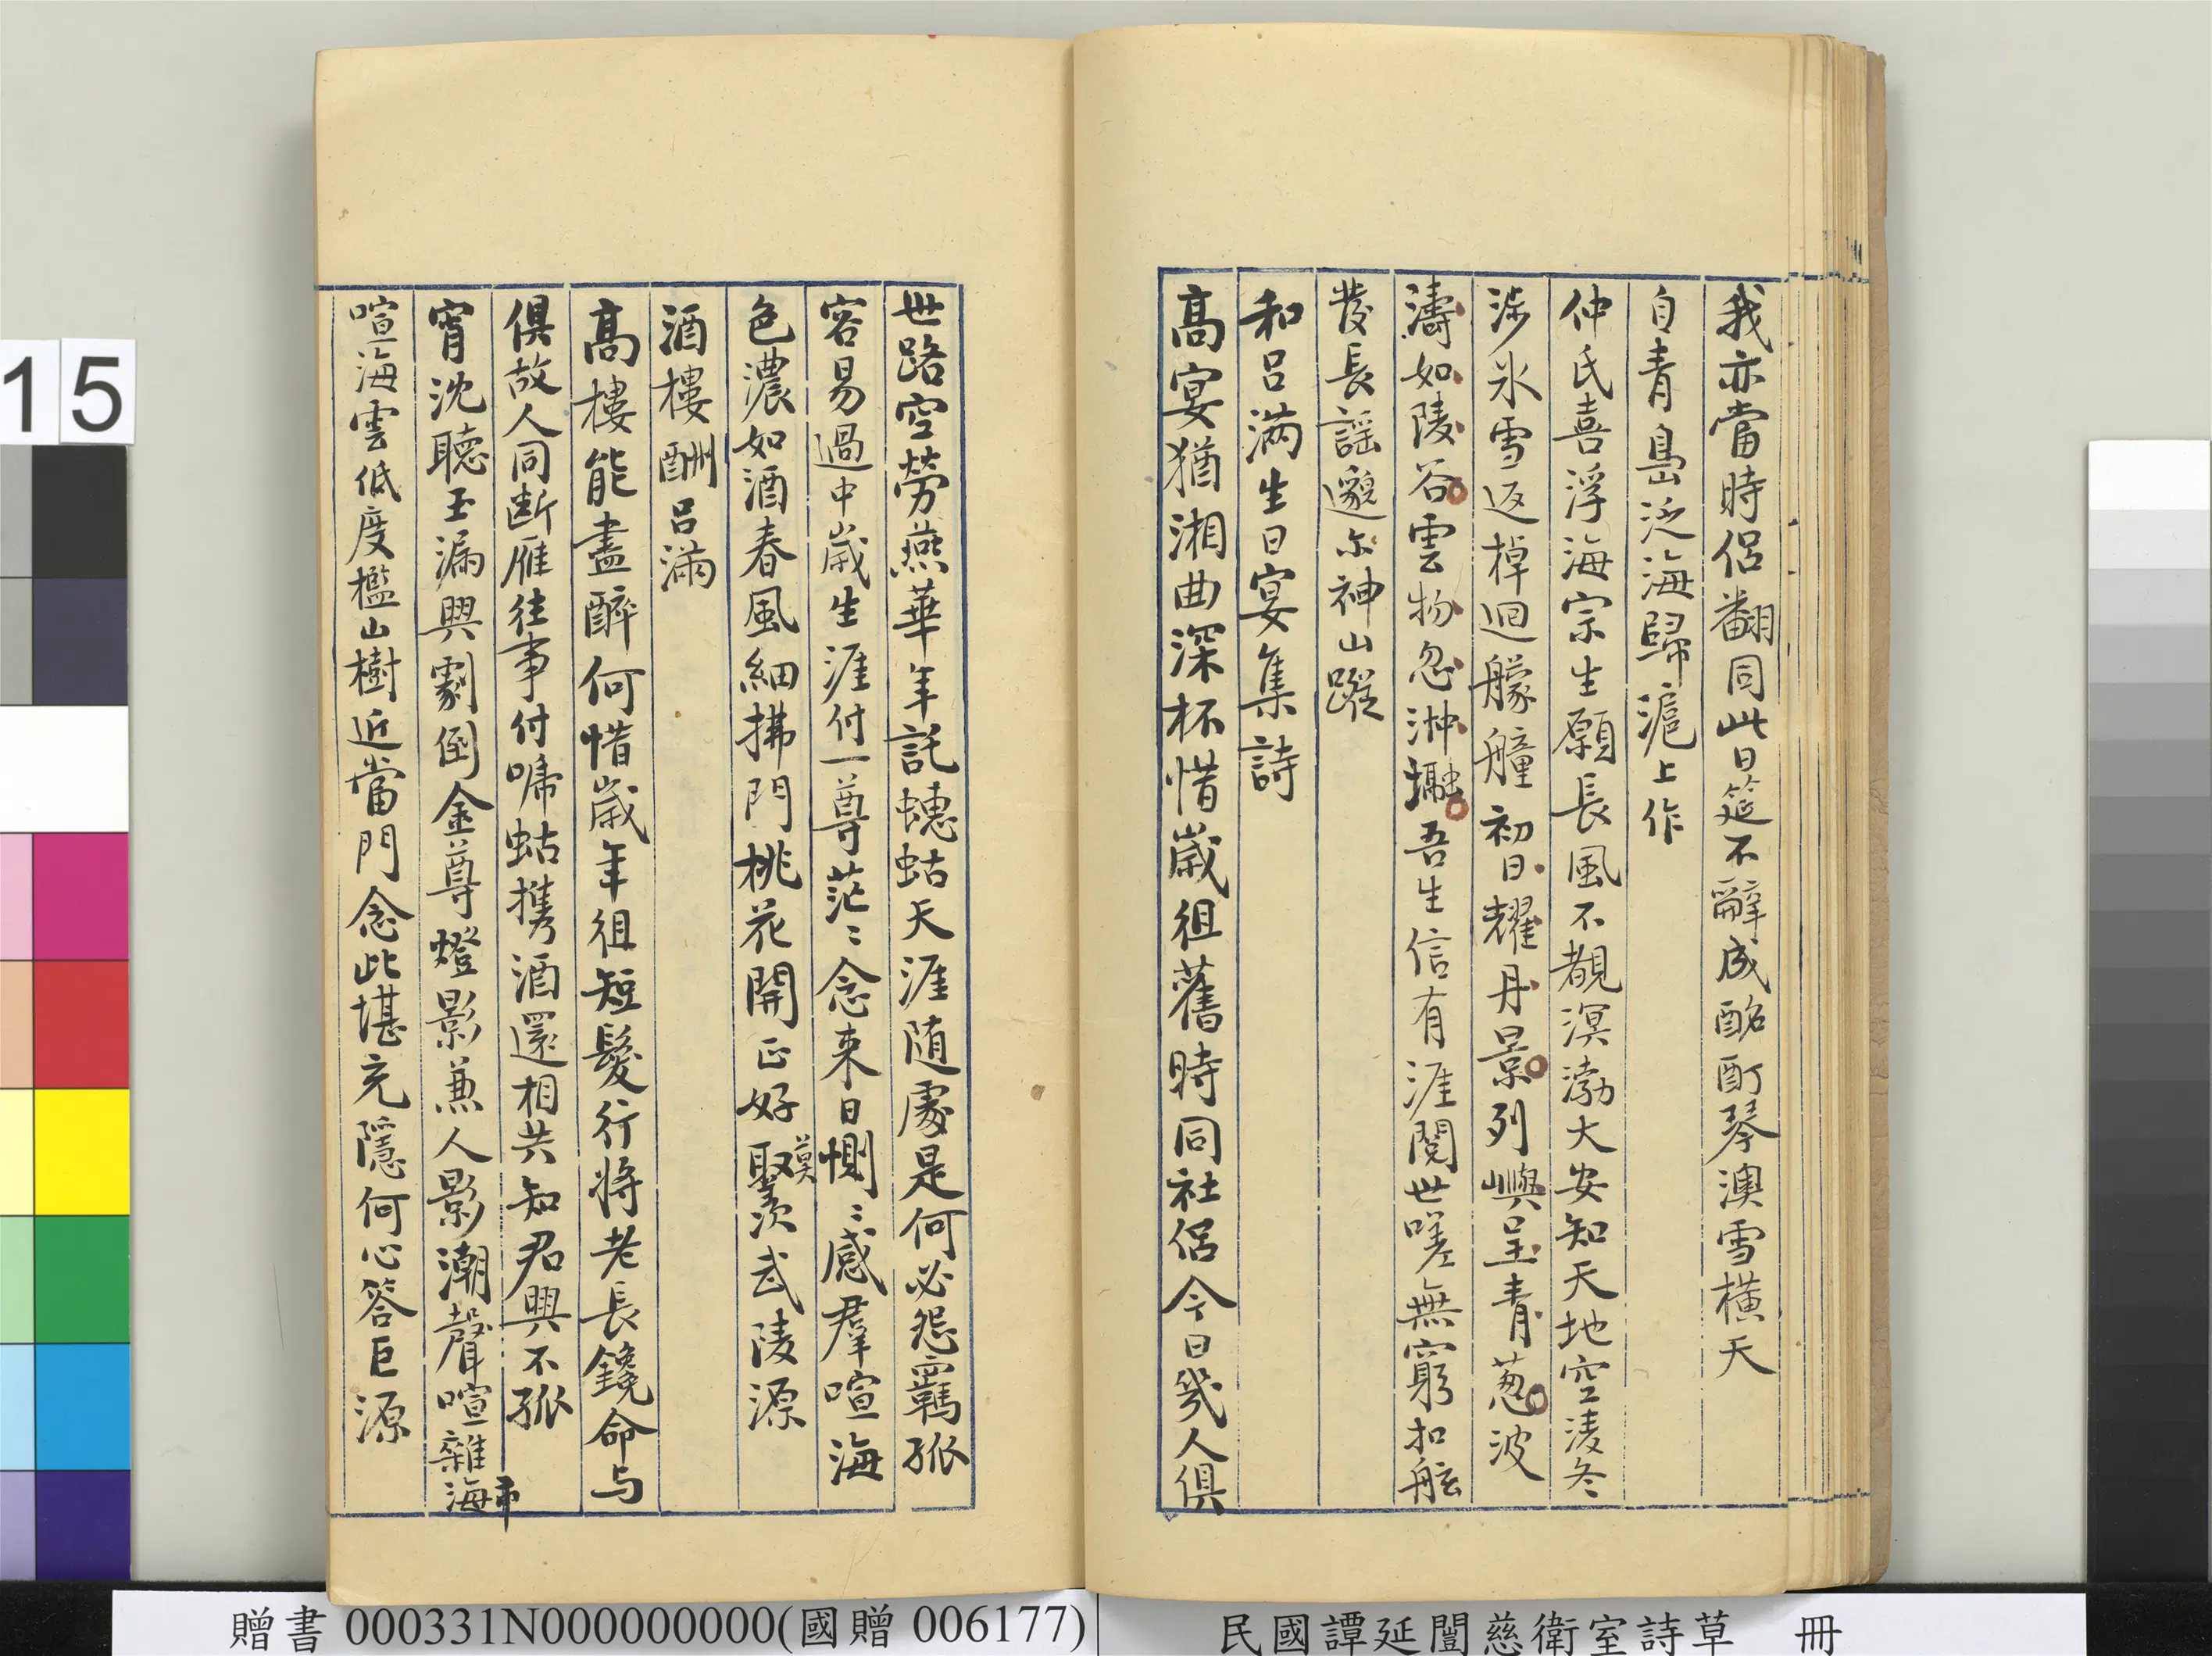 我亦當時侶翻同此日筵不辭成酩酊琴澳雪橫天
自青島泛海歸滬上作
仲氏喜浮海宗生願長風不觀溟渤大安知天地空淩冬
涉氷雪返棹迴艨艟初日耀丹景列嶼呈青葱波
濤如陵谷雲物忽沖瀜吾生信有涯閱世嗟無窮扣舷
發長謡邈尔神山蹤
和呂滿生日宴集詩
高宴猶湘曲深杯惜歲徂舊時同社侶今日幾人俱
世路空勞燕華年託蟪蛄天涯随處是何必怨羈孤
容易過中歲生涯付一尊茫〻念來日惻〻感羣喧海
色濃如酒春風細拂門桃花開正好莫聚羨武陵源
酒樓酬呂滿
高樓能盡醉何惜歲年徂短髮行將老長鑱命与
俱故人同断雁往事付啼蛄攜酒還相共知君興不孤
宵沈聽玉漏興劇倒金尊燈影兼人影潮聲喧雜海市
喧海雲低度檻山樹近當門念此堪充隱何心答巨源
15
贈書 000331N000000000(國贈 006177)
民國譚延闓慈衛室詩草 冊